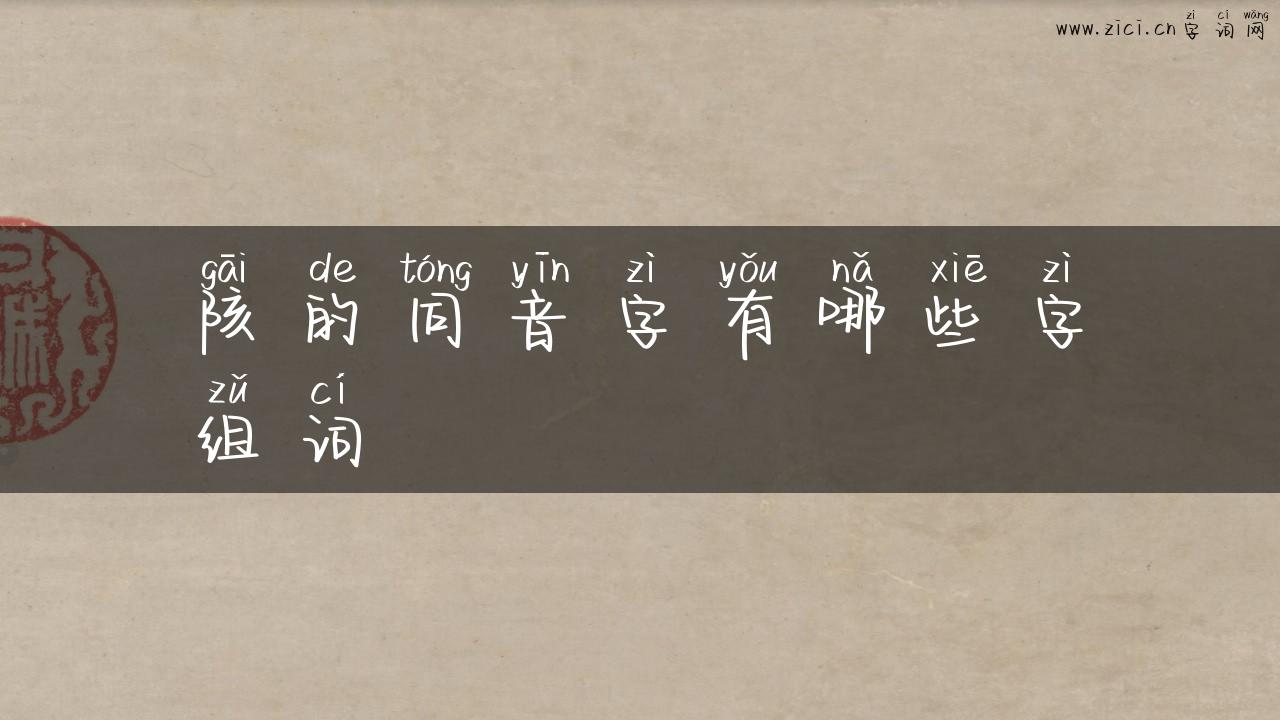 www.zici.cn 字词网
zì cí wǎng
gāi de tóng yīn zì yǒu nǎ xiē zì
陔的同音字有哪些字
zǔ cí
组词